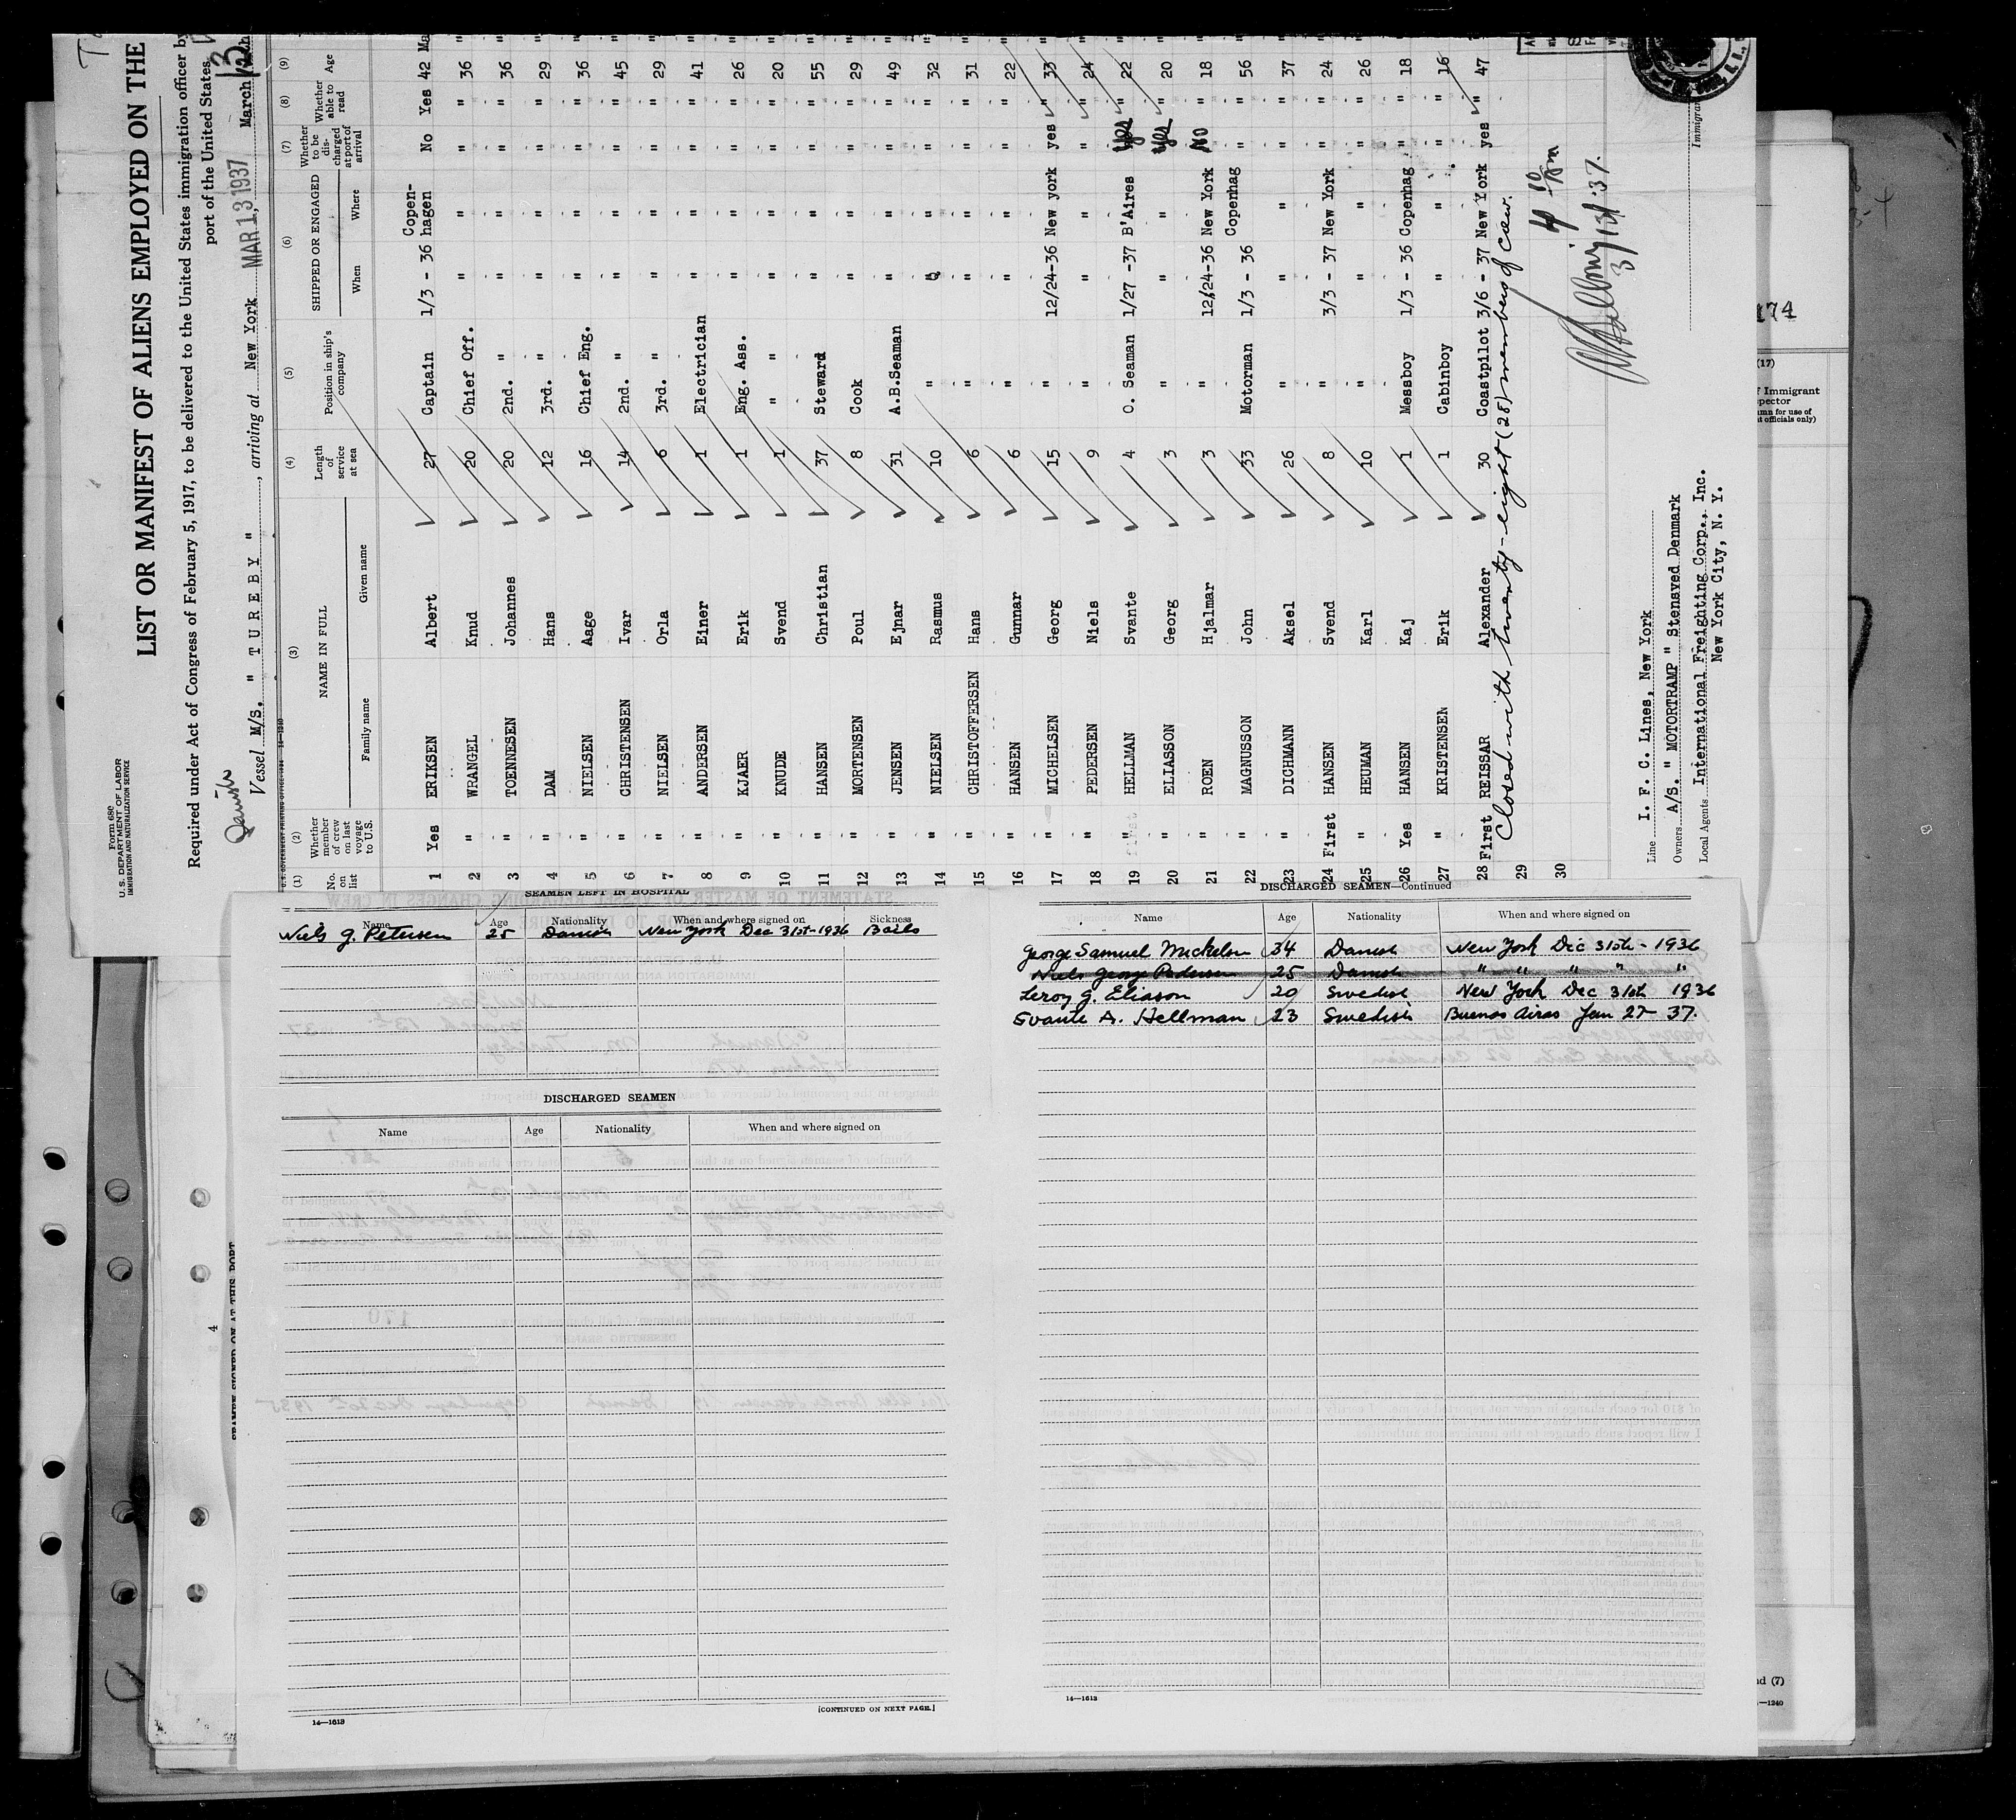 Form 680
U. S. DEPARTMENT OF LABOR
IMMIGRATION AND NATURALIZATION SERVICE
LIST OR MANIFEST OF ALIENS EMPLOYED ON THE
Required under Act of Congress of February 5, 1917, to be delivered to the United States immigration officer by
port of the United States
Danish
Vessel M/s. " T U R E B Y ", arriving at New York MAR 13 1937, March 13
(1) (2) (3) (4) (5) (6) (7) (8) (9)
No. on list
Whether member of crew on last voyage to U.S.
NAME IN FULL
Family name Given name
Length of service at sea
Position in ship's company
SHIPPED OR ENGAGED
When Where
Whether to be discharged at port of arrival
Whether able to read
Age
1 Yes ERIKSEN Albert 27 Captain 1/3 - 36 Copenhagen No Yes 42 Ma
2 " WRANGEL Knud 20 Chief Off. " " " " 36 "
3 " TOENNESEN Johannes 20 2nd. " " " " " 36 "
4 " DAM Hans 12 3rd. " " " " " 29 "
5 " NIELSEN Aage 16 Chief Eng. " " " " 36 "
6 " CHRISTENSEN Ivar 14 2nd. " " " " " 45 "
7 " NIELSEN Orla 6 3rd. " " " " " 29 "
8 " ANDERSEN Einer 1 Electrician " " " " 41 "
9 " KJAER Erik 1 Eng. Ass. " " " " 26 "
10 " KNUDE Svend 1 " " " " " " 20 "
11 " HANSEN Christian 37 Steward " " " " 55 "
12 " MORTENSEN Poul 8 Cook " " " " 29 "
13 " JENSEN Ejnar 31 A.B.Seaman " " " " 49 "
14 " NIELSEN Rasmus 10 " " " " " 32 "
15 " CHRISTOFFERSEN Hans 6 " " " " " 31 "
16 " HANSEN Gunnar 6 " " " " " 22 "
17 " MICHELSEN Georg 15 " 12/24-36 New york yes " 33 "
18 " PEDERSEN Niels 9 " " " " " 24 "
19 " HELLMAN Svante 4 O. Seaman 1/27 -37 B'Aires yes " 22 "
20 " ELIASSON Georg 3 " " " yes " 20 "
21 " ROEN Hjalmar 3 " 12/24-36 New York No " 18 "
22 " MAGNUSSON John 33 Motorman 1/3 - 36 Copenhag " " 56 "
23 " DICHMANN Aksel 26 " " " " " 37 "
24 First HANSEN Svend 8 " 3/3 - 37 New York " " 24 "
25 " HEUMAN Karl 10 " " " " " 26 "
26 Yes HANSEN Kaj 1 Messboy 1/3 - 36 Copenhag " " 18 "
27 " KRISTENSEN Erik 1 Cabinboy " " " " 16 "
28 First REISSAR Alexander 30 Coastpilot 3/6 - 37 New York yes " 47
29 Closed with twenty-eight (28) members of crew.
30
4 10 Pm
3/13/37.
Line I. F. C. Lines, New York
Owners A/S. " MOTORTRAMP " Stensved Denmark
Local Agents International Freighting Corp., Inc.
New York City, N. Y.
Immigran
174
(17)
f Immigrant
spector
mn for use of
t officials only)
nd (7)
—1240
SEAMEN LEFT IN HOSPITAL
Name Age Nationality When and where signed on Sickness
Niels G. Petersen 25 Danish New York Dec 31st-1936 Boils
DISCHARGED SEAMEN
Name Age Nationality When and where signed on
14—1613
[CONTINUED ON NEXT PAGE.]
DISCHARGED SEAMEN—Continued
Name Age Nationality When and where signed on
George Samuel Mickelsen 34 Danish New York Dec 31st - 1936
Niels George Pedersen 25 Danish " " " " "
Leroy G. Eliason 20 Swedish New York Dec 31st 1936
Svante A. Hellman 23 Swedish Buenos Aires Jan 27- 37.
14—1613
4
SEAMEN SIGNED ON AT THIS PORT